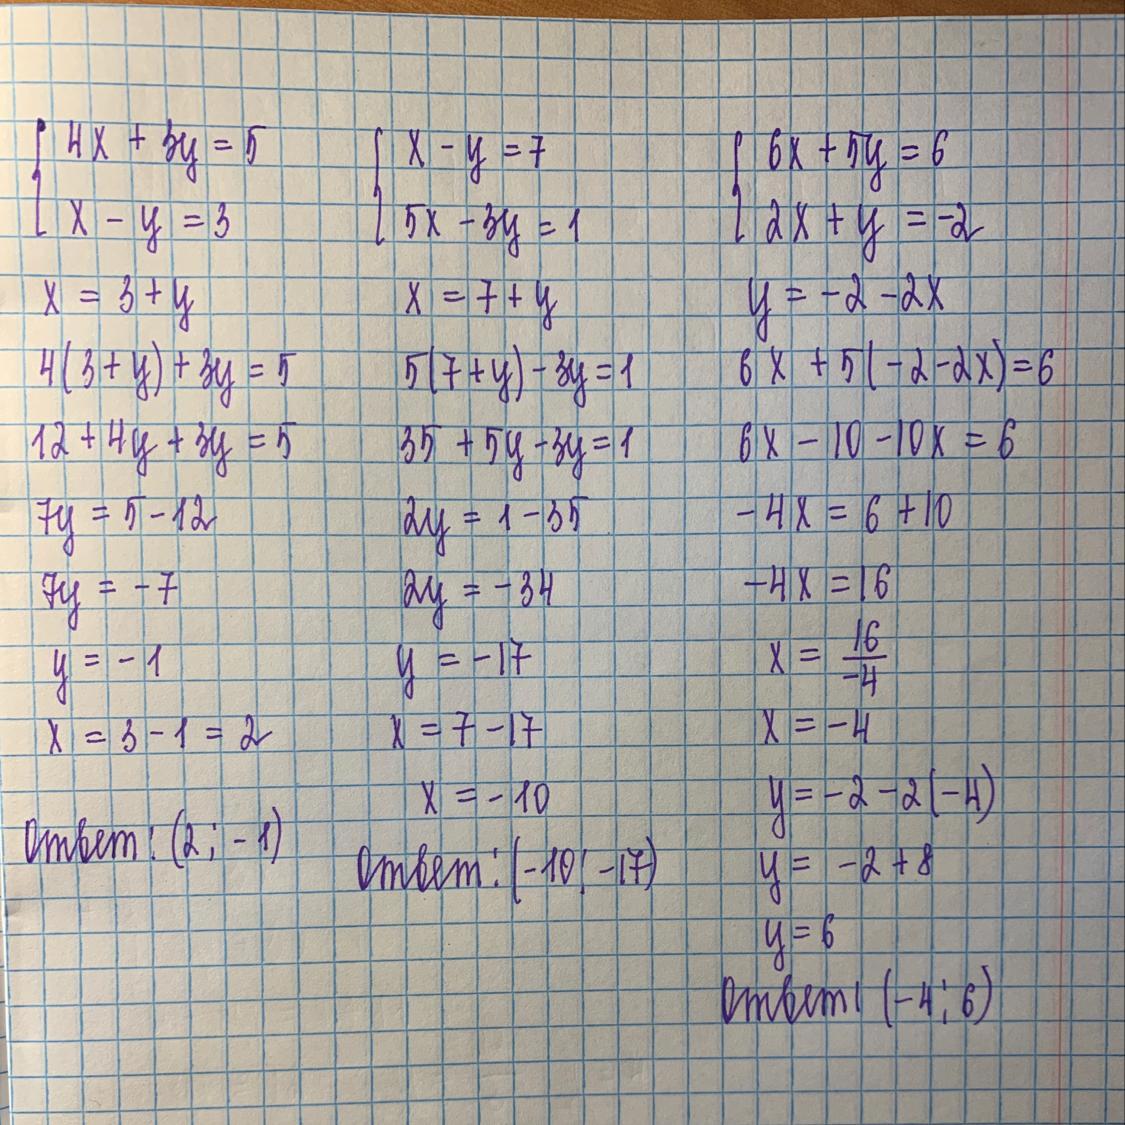 4x + 3y = 5
x - y = 3
x = 3 + y
4(3+y)+3y = 5
12+4y+3y = 5
7y = 5-12
7y = -7
y = -1
x = 3-1 = 2
Ответ: (2; -1)
x - y = 7
5x - 3y = 1
x = 7+y
5(7+y)-3y = 1
35+5y-3y = 1
2y = 1-35
2y = -34
y = -17
x = 7-17
x = -10
Ответ: (-10; -17)
6x + 5y = 6
2x + y = -2
y = -2-2x
6x +5(-2-2x)=6
6x -10-10x = 6
-4x = 6+10
-4x = 16
x = 16/-4
x = -4
y = -2-2(-4)
y = -2+8
y = 6
Ответ: (-4; 6)